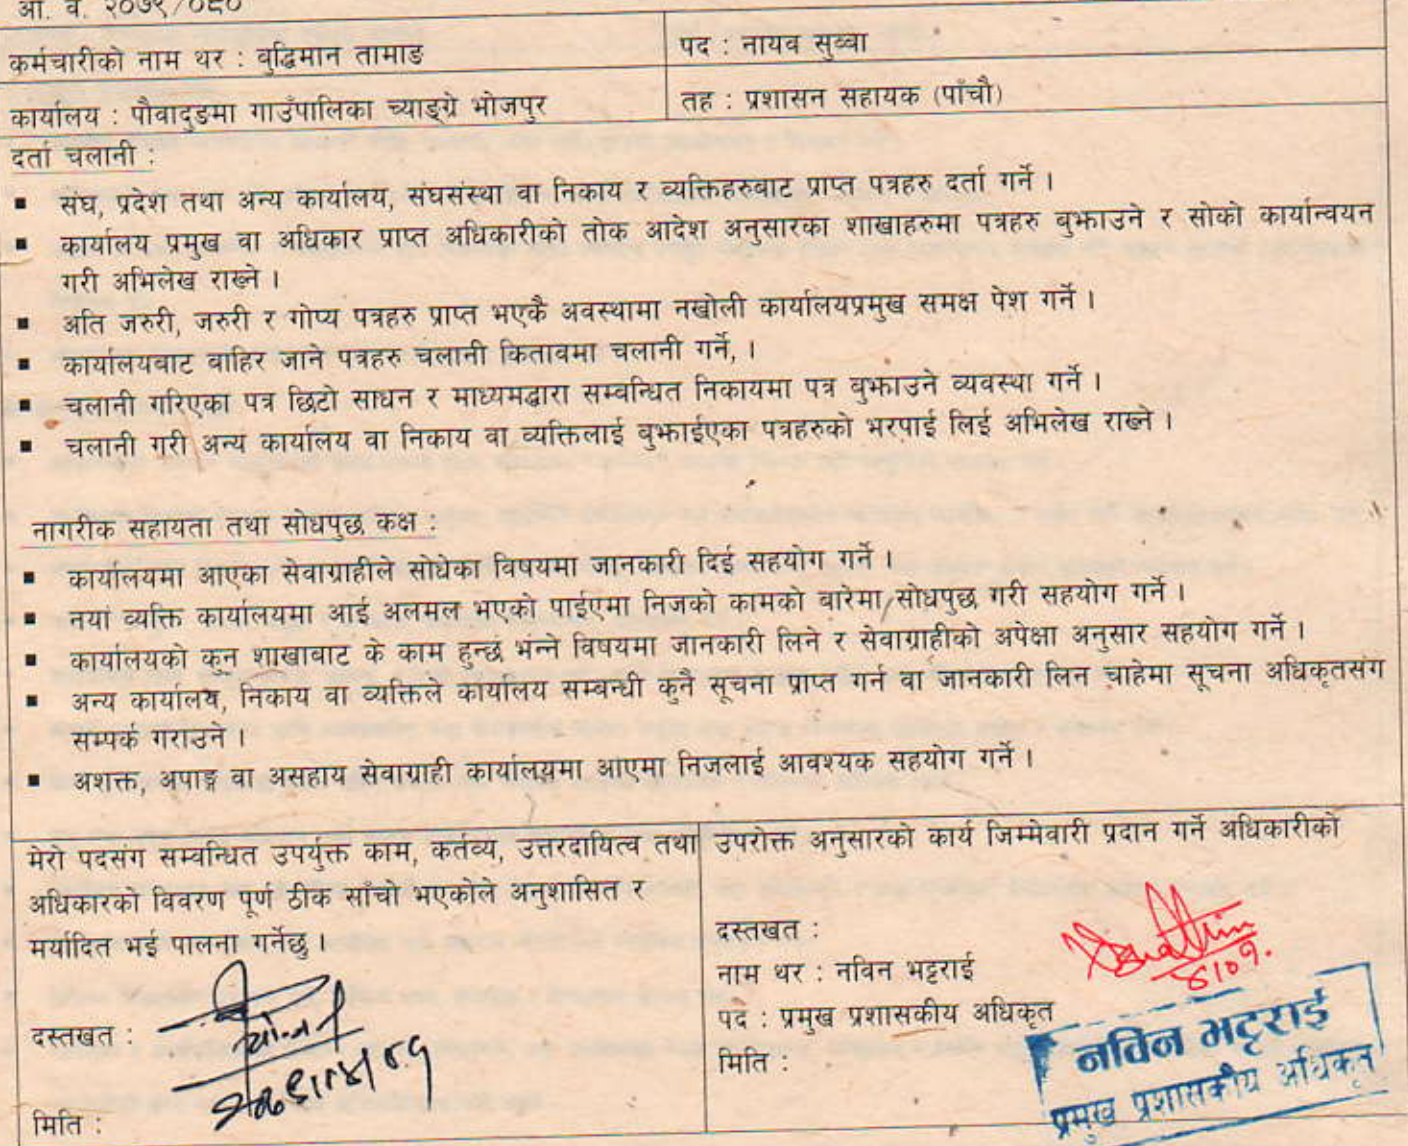 आ. व. २०७९/०८०
कर्मचारीको नाम थर : बुद्धिमान तामाङ
पद : नायव सुव्वा
कार्यालय : पौवादुङमा गाउँपालिका च्याङ्ग्रे भोजपुर
तह : प्रशासन सहायक (पाँचौ)
दर्ता चलानी :
▪ संघ, प्रदेश तथा अन्य कार्यालय, संघसंस्था वा निकाय र व्यक्तिहरुबाट प्राप्त पत्रहरु दर्ता गर्ने ।
▪ कार्यालय प्रमुख वा अधिकार प्राप्त अधिकारीको तोक आदेश अनुसारका शाखाहरुमा पत्रहरु बुझाउने र सोको कार्यान्वयन
गरी अभिलेख राख्ने ।
▪ अति जरुरी, जरुरी र गोप्य पत्रहरु प्राप्त भएकै अवस्थामा नखोली कार्यालयप्रमुख समक्ष पेश गर्ने ।
▪ कार्यालयबाट बाहिर जाने पत्रहरु चलानी कितावमा चलानी गर्ने, ।
▪ चलानी गरिएका पत्र छिटो साधन र माध्यमद्धारा सम्वन्धित निकायमा पत्र बुझाउने व्यवस्था गर्ने ।
▪ चलानी गरी अन्य कार्यालय वा निकाय वा व्यक्तिलाई बुझाईएका पत्रहरुको भरपाई लिई अभिलेख राख्ने ।
नागरीक सहायता तथा सोधपुछ कक्ष :
▪ कार्यालयमा आएका सेवाग्राहीले सोधेका विषयमा जानकारी दिई सहयोग गर्ने ।
▪ नयां व्यक्ति कार्यालयमा आई अलमल भएको पाईएमा निजको कामको बारेमा सोधपुछ गरी सहयोग गर्ने ।
▪ कार्यालयको कुन शाखाबाट के काम हुन्छ भन्ने विषयमा जानकारी लिने र सेवाग्राहीको अपेक्षा अनुसार सहयोग गर्ने ।
▪ अन्य कार्यालय, निकाय वा व्यक्तिले कार्यालय सम्बन्धी कुनै सूचना प्राप्त गर्न वा जानकारी लिन चाहेमा सूचना अधिकृतसंग
सम्पर्क गराउने ।
▪ अशक्त, अपाङ्ग वा असहाय सेवाग्राही कार्यालयमा आएमा निजलाई आवश्यक सहयोग गर्ने ।
मेरो पदसंग सम्वन्धित उपर्युक्त काम, कर्तव्य, उत्तरदायित्व तथा
अधिकारको विवरण पूर्ण ठीक साँचो भएकोले अनुशासित र
मर्यादित भई पालना गर्नेछु ।
दस्तखत :
मिति :
उपरोक्त अनुसारको कार्य जिम्मेवारी प्रदान गर्ने अधिकारीको
दस्तखत :
नाम थर : नविन भट्टराई
पद : प्रमुख प्रशासकीय अधिकृत
मिति :
नविन भट्टराई
प्रमुख प्रशासकीय अधिकृत